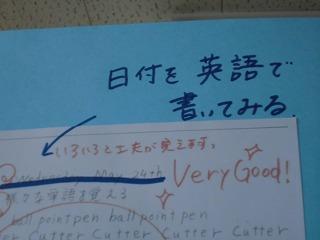 日付を 英語で
書いてみる
いろいろと工夫が見えます。
Wednesday May 24th
Very Good!
様々な単語を覚える
ballpointpen ballpointpen
Cutter Cutter Cutter Cutter
Cutter Cutter Cutter